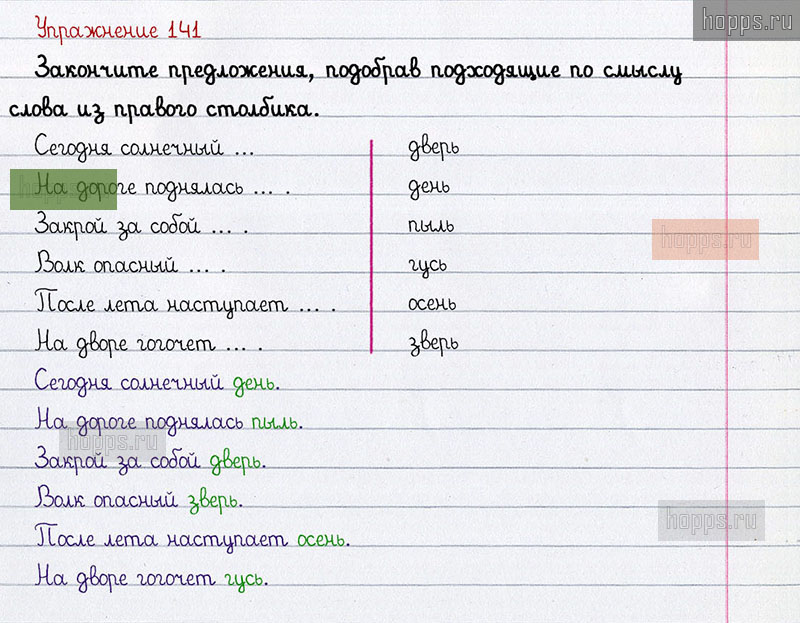 hopps.ru
Упражнение 141
Закончите предложения, подобрав подходящие по смыслу
слова из правого столбика.
Сегодня солнечный ... дверь
На дороге поднялась ... . день
Закрой за собой ... . пыль
Волк опасный ... . гусь
После лета наступает ... . осень
На дворе гогочет ... . зверь
Сегодня солнечный день.
На дороге поднялась пыль.
Закрой за собой дверь.
Волк опасный зверь.
После лета наступает осень.
На дворе гогочет гусь.
hopps.ru
hopps.ru
hopps.ru
hopps.ru